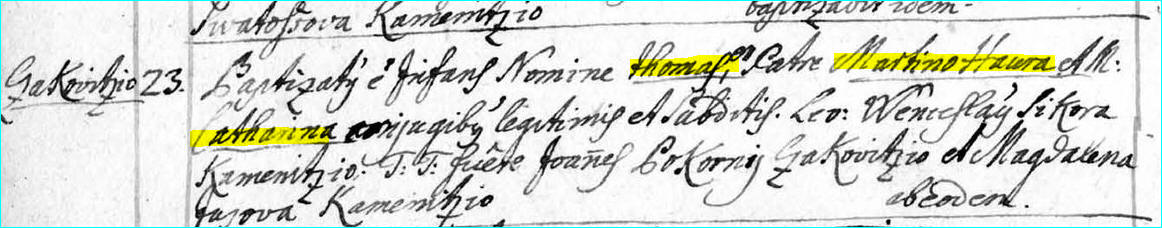 Swatossova Kamenitzio baptizavit idem.
Gakovitzio 23. Baptizaty ē Infans Nomine Thomas, Patre Martino Havra et M:
Catharina conjugiby legitimis et subditis. Lev: Wenceslay Sikora
Kamenitzio: T: T: fuēre Joan̄es Pokorny Gakovitzio et Magdalena
Kamenitzio ab eodem.